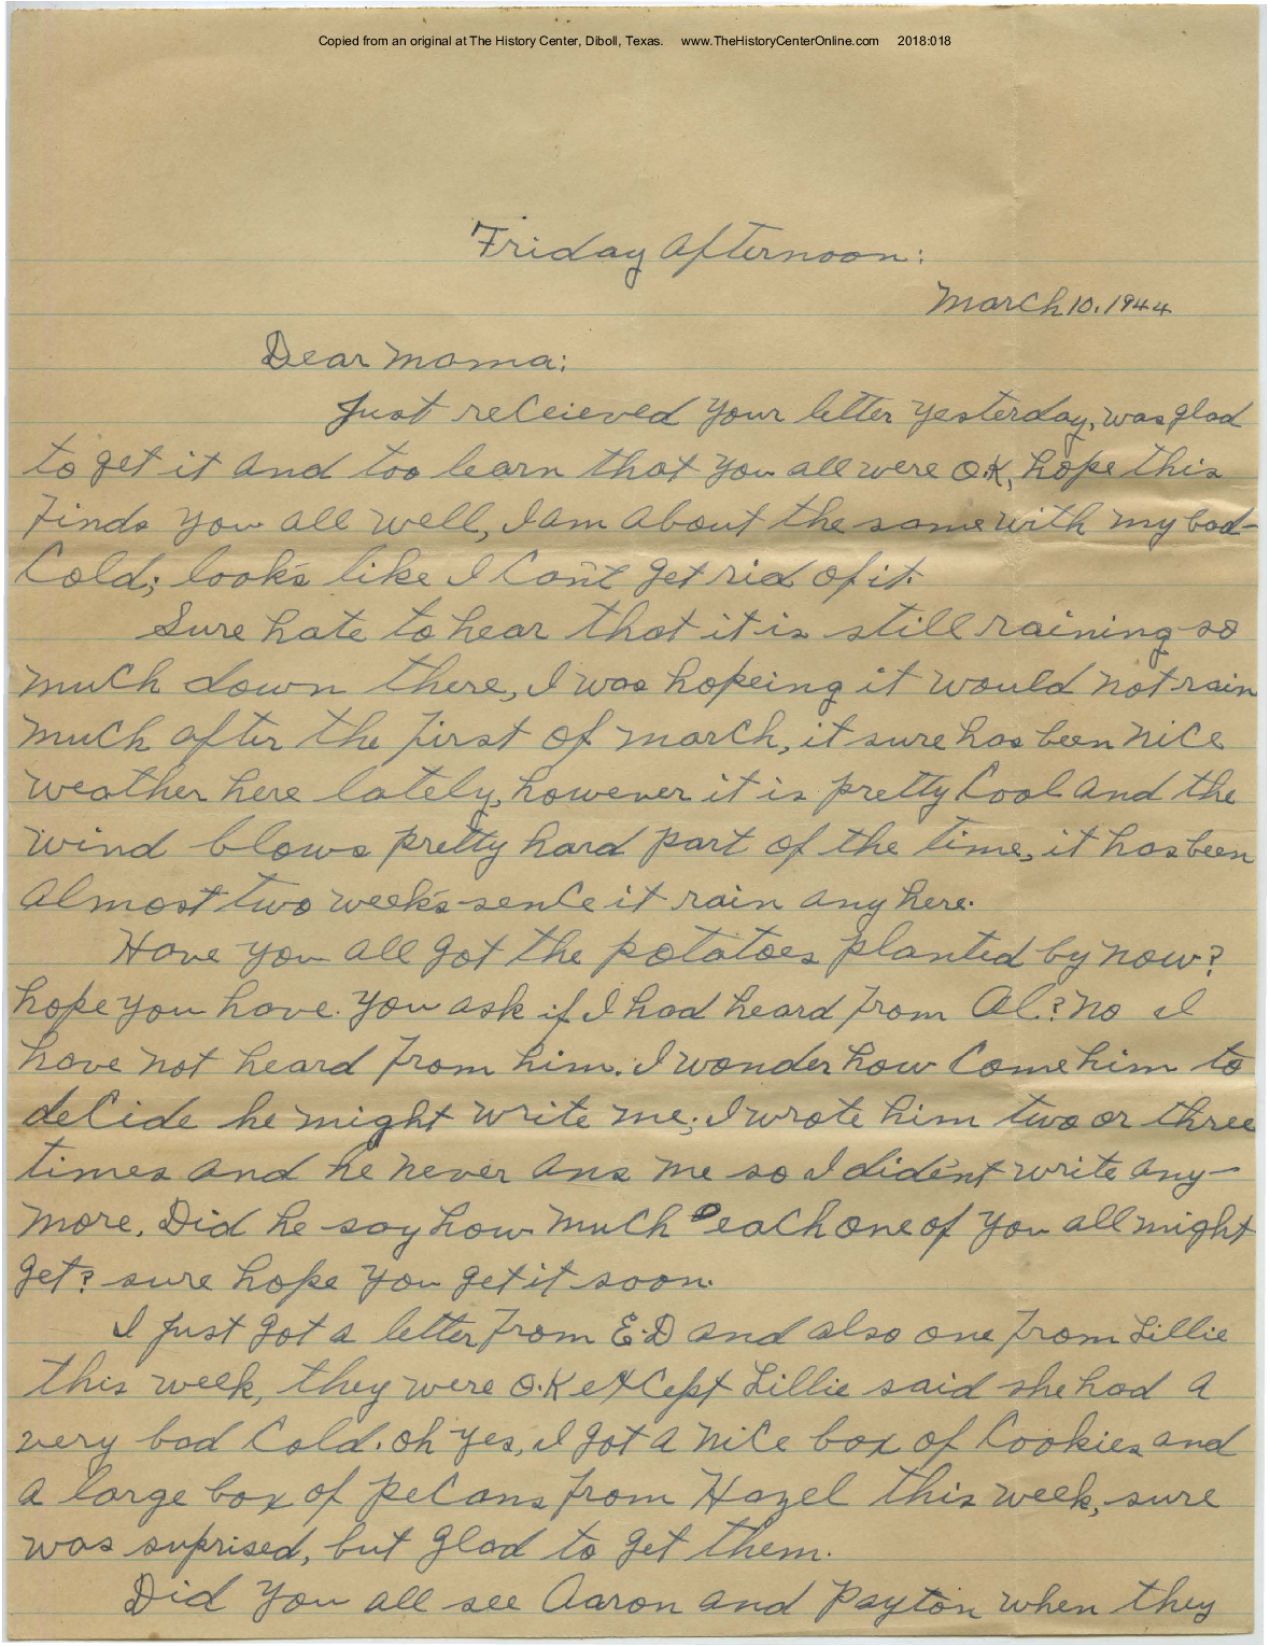 Copied from an original at The History Center, Diboll, Texas. www.TheHistoryCenterOnline.com 2018:018
Friday afternoon:
March 10. 1944
Dear Moma:
Just receieved your letter yesterday, was glad
to get it and too learn that you all were O.K, hope this
finds you all well, I am about the same with my bad-
Cold; look's like I Can't get rid of it.
Sure hate to hear that it is still raining so
much down there, I was hopeing it would not rain
much after the first of march, it sure has been nice
weather here lately, however it is pretty Cool and the
wind blows pretty hard part of the time, it has been
almost two week's sence it rain any here.
Have you all got the potatoes planted by now?
hope you have. you ask if I had heard from Al? no I
have not heard from him. I wonder how Come him to
decide he might write me; I wrote him two or three
times and he never ans me so I did'ent write any-
more. Did he say how much each one of you all might
get? sure hope you get it soon.
I just got a letter from E.D and also one from Lillie
this week, they were O.K except Lillie said she had a
very bad Cold. oh yes, I got a nice box of Cookies and
a large box of pecans from Hazel this week, sure
was suprised, but glad to get them.
Did you all see Aaron and Payton when they